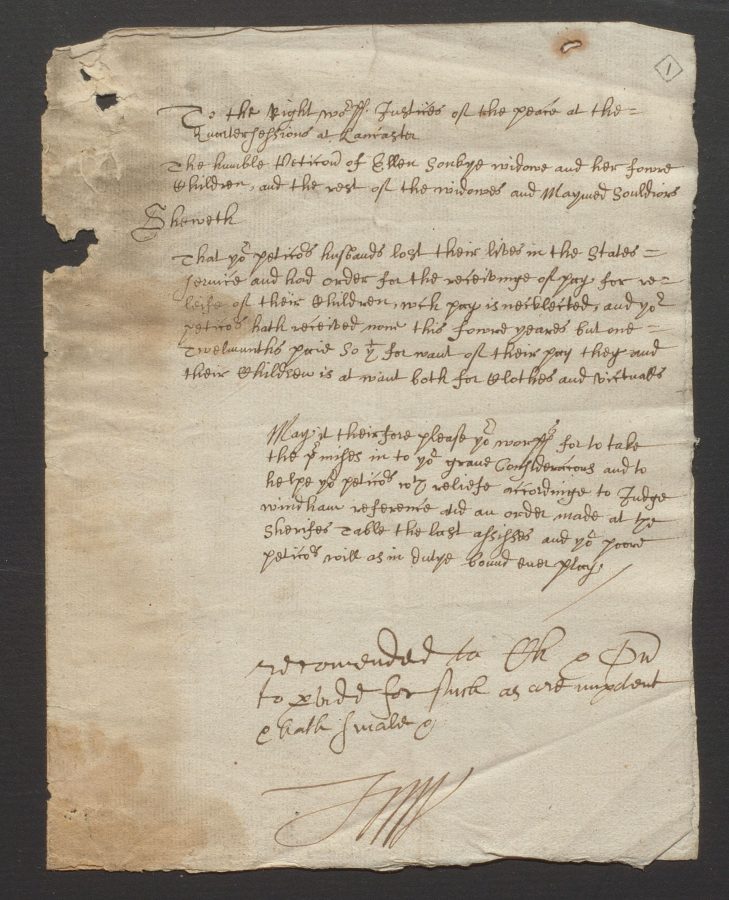 1
To the Right worff Justices of the peace at the=
Quartersessions at Lancaster
The humble Peticon of Ellen Sonkye widowe and her fowre
Children, and the rest of the widowes and Maymed Souldiors
Sheweth
That yor peticors husbands lost their lives in the States=
service and had order for the receivinge of pay, for re=
leife of their Children, wch pay is neckleckted, and yor
peticors hath received none this fowre yeares but one=
Twelmunths paie So yt for want of their pay they and
their Children is at want both for Clothes and victualls
May it theirfore please yor worpps for to take
the pmisses in to yor grave Consideracons and to
helpe yor peticors wth reliefe accordinge to Judge
windham reference and an order made at the
Sherifes Table the last assisses and yor poore
peticors will as in dutye bound ever pray
recomended to
to pvide for such as are impotent